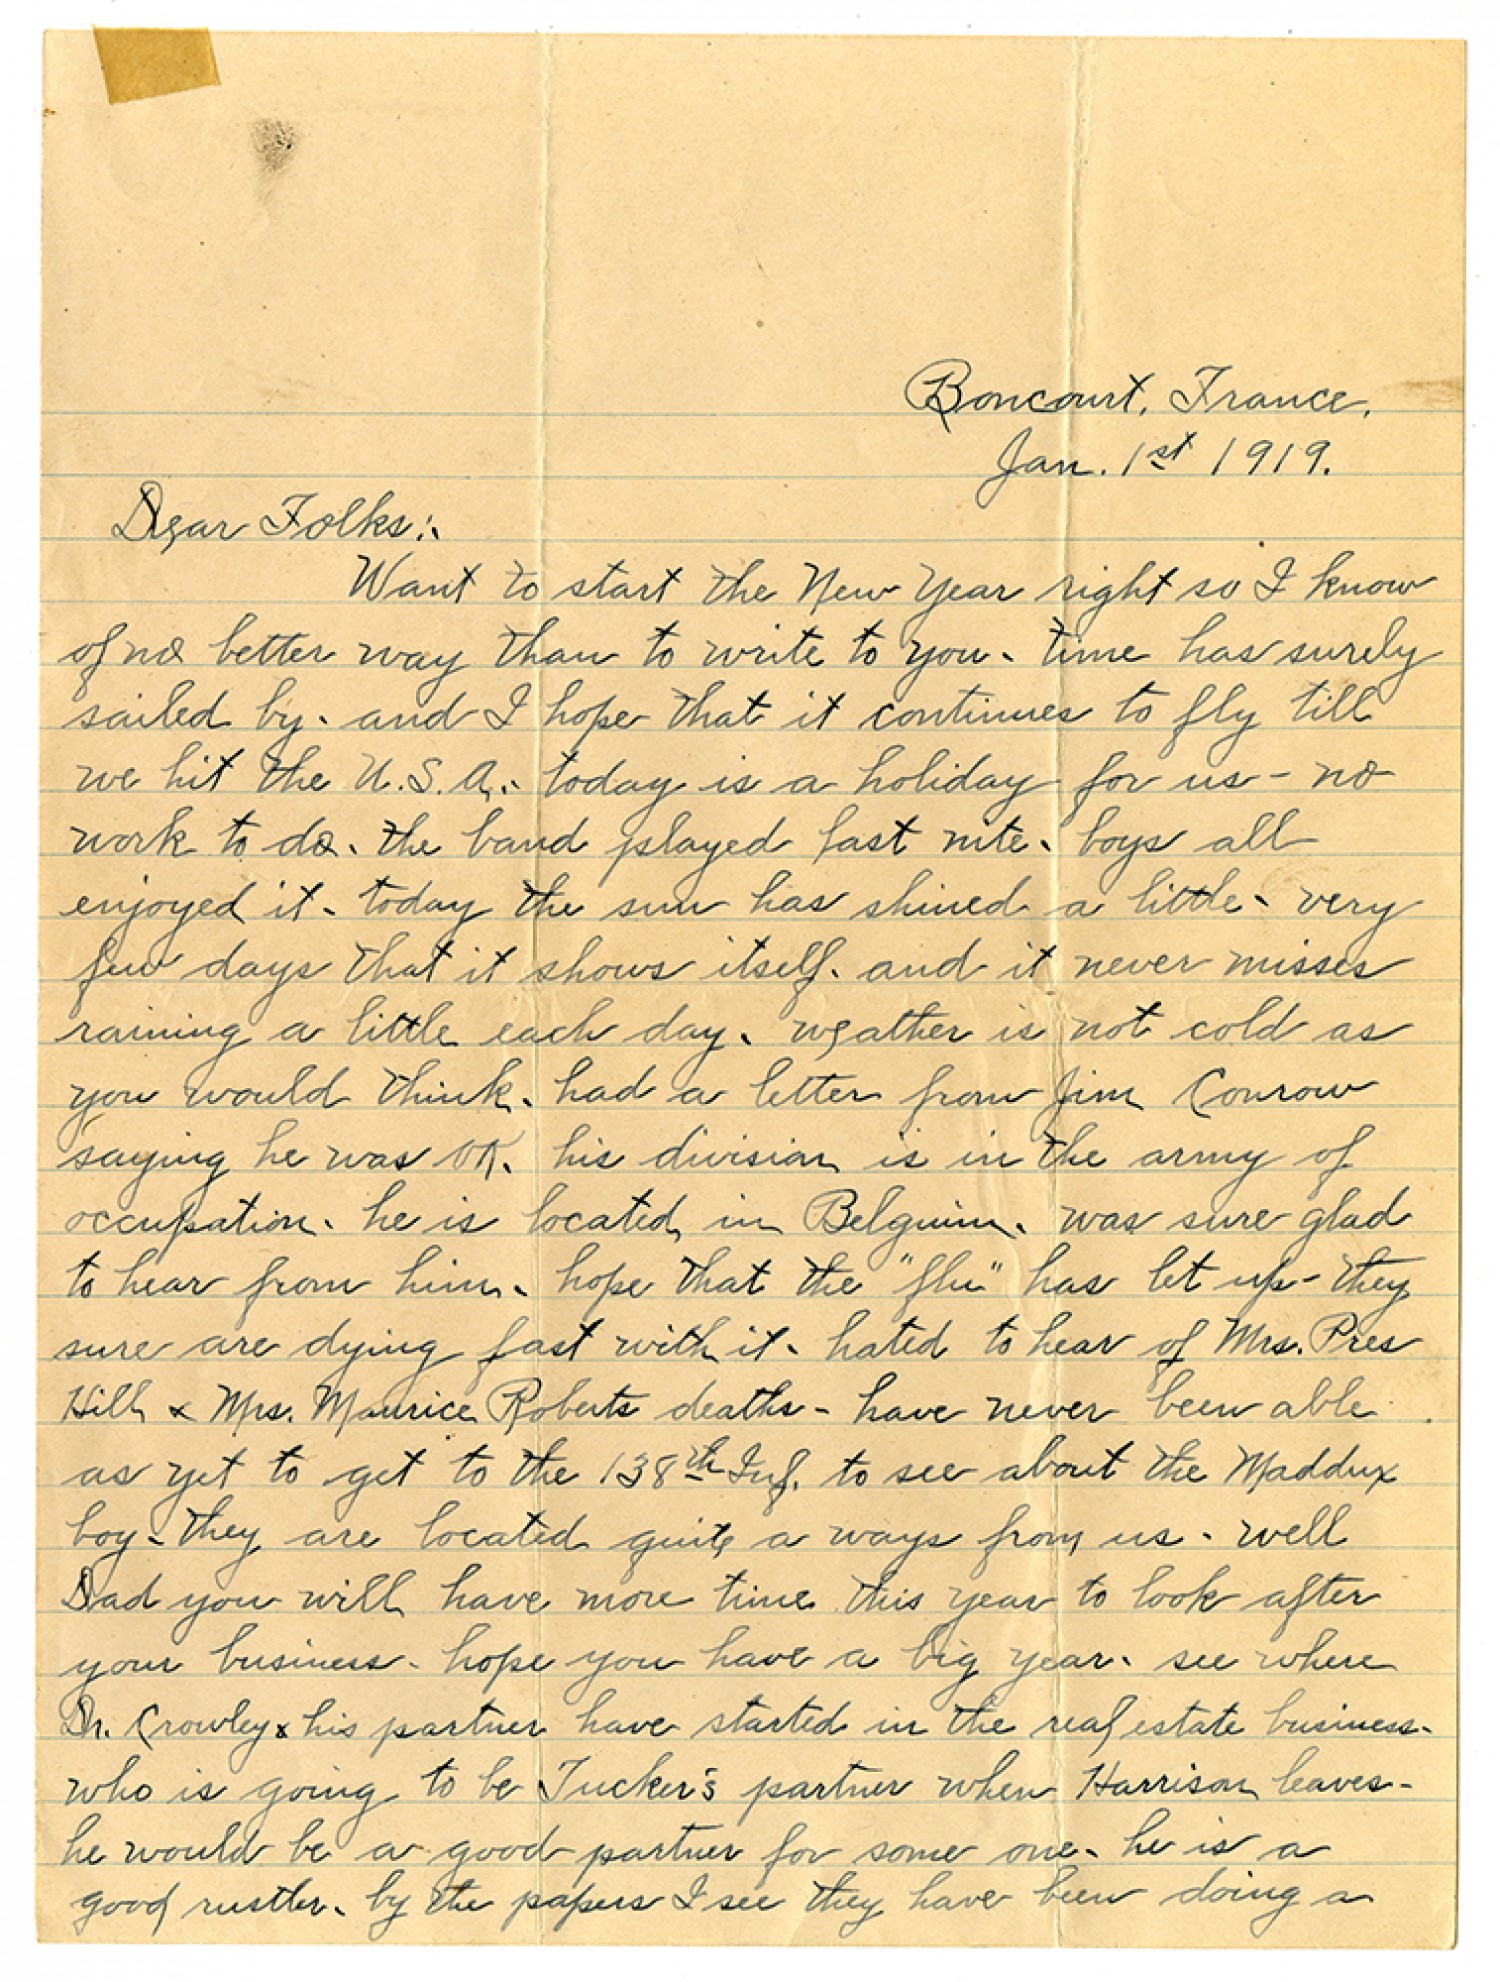 Boncourt, France.
Jan. 1st 1919.
Dear Folks:-
Want to start the New Year right so I know
of no better way than to write to you - time has surely
sailed by - and I hope that it continues to fly till
we hit the U.S.A. - today is a holiday for us - no
work to do - the band played last nite - boys all
enjoyed it - today the sun has shined a little - very
few days that it shows itself - and it never misses
raining a little each day - weather is not cold as
you would think - had a letter from Jim Conrow
saying he was OK. his division is in the army of
occupation - he is located in Belguim - was sure glad
to hear from him - hope that the "flu" has let up - they
sure are dying fast with it - hated to hear of Mrs. Pres
Hill & Mrs. Maurice Roberts deaths - have never been able
as yet to get to the 138th Inf. to see about the Maddux
boy - they are located quite a ways from us - well
Dad you will have more time this year to look after
your business - hope you have a big year - see where
Dr. Crowley & his partner have started in the real estate business -
who is going to be Tucker's partner when Harrison leaves -
he would be a good partner for some one - he is a
good rustler - by the papers I see they have been doing a